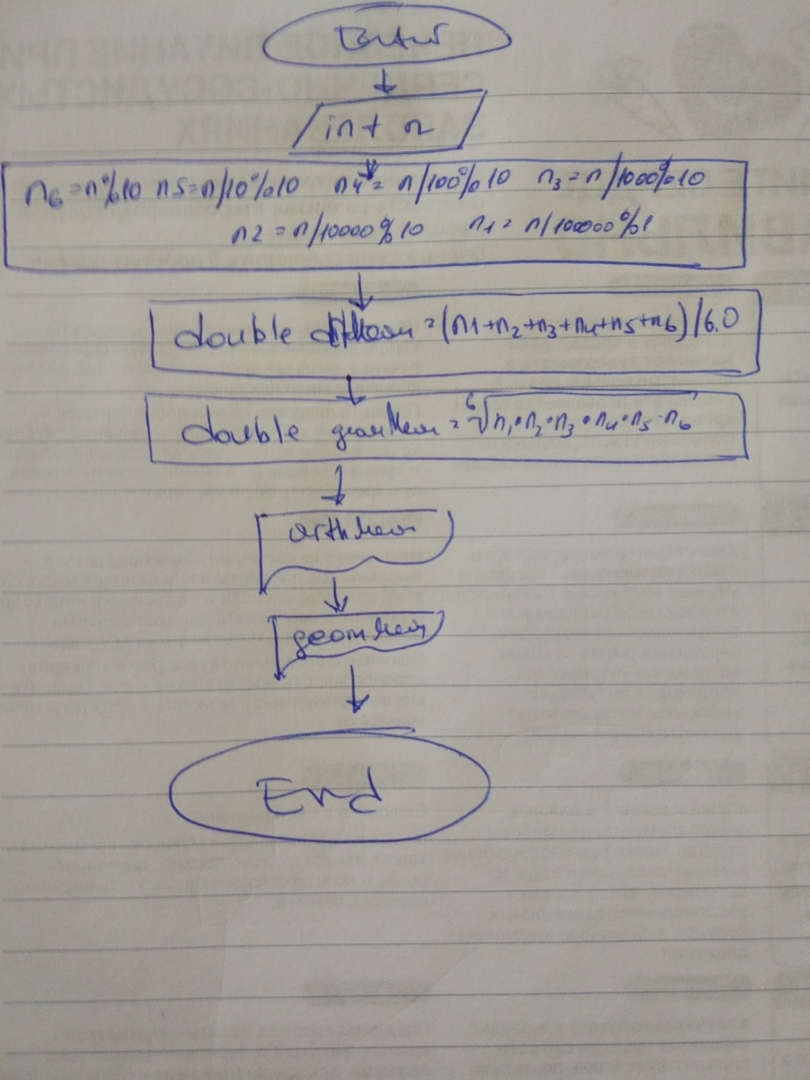 int n
n6 = n%10 n5 = n/10%10 n4 = n/100%10 n3 = n/1000%10
n2 = n/10000%10 n1 = n/100000%1
double = (n1+n2+n3+n4+n5+n6)/6.0
double geomMean = ⁶√n1·n2·n3·n4·n5·n6
arthMean
geomMean
End